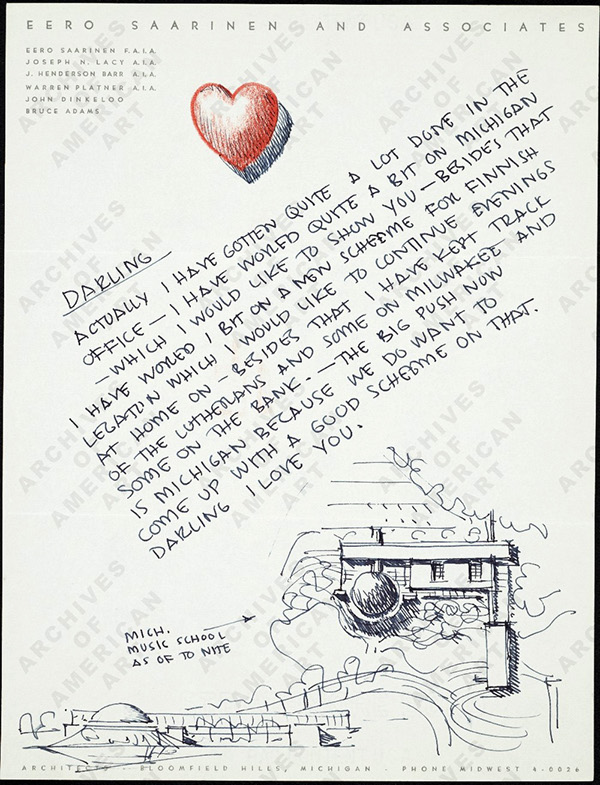 EERO SAARINEN AND ASSOCIATES
EERO SAARINEN F.A.I.A.
JOSEPH N. LACY A.I.A.
J. HENDERSON BARR A.I.A.
WARREN PLATNER A.I.A.
JOHN DINKELOO
BRUCE ADAMS
DARLING
ACTUALLY I HAVE GOTTEN QUITE A LOT DONE IN THE
OFFICE — I HAVE WORKED QUITE A BIT ON MICHIGAN
— WHICH I WOULD LIKE TO SHOW YOU — BESIDES THAT
I HAVE WORKED I BIT ON A NEW SCHEEME FOR FINNISH
LEGATON WHICH I WOULD LIKE TO CONTINUE EVENINGS
AT HOME ON — BESIDES THAT I HAVE KEPT TRACK
OF THE LUTHERANS AND SOME ON MILWAKEE AND
SOME ON THE BANK. — THE BIG PUSH NOW
IS MICHIGAN BECAUSE WE DO WANT TO
COME UP WITH A GOOD SCHEEME ON THAT.
DARLING I LOVE YOU.
MICH.
MUSIC SCHOOL
AS OF TO NITE
ARCHITECTS · BLOOMFIELD HILLS, MICHIGAN · PHONE MIDWEST 4-0026
ARCHIVES
OF
AMERICAN
ART